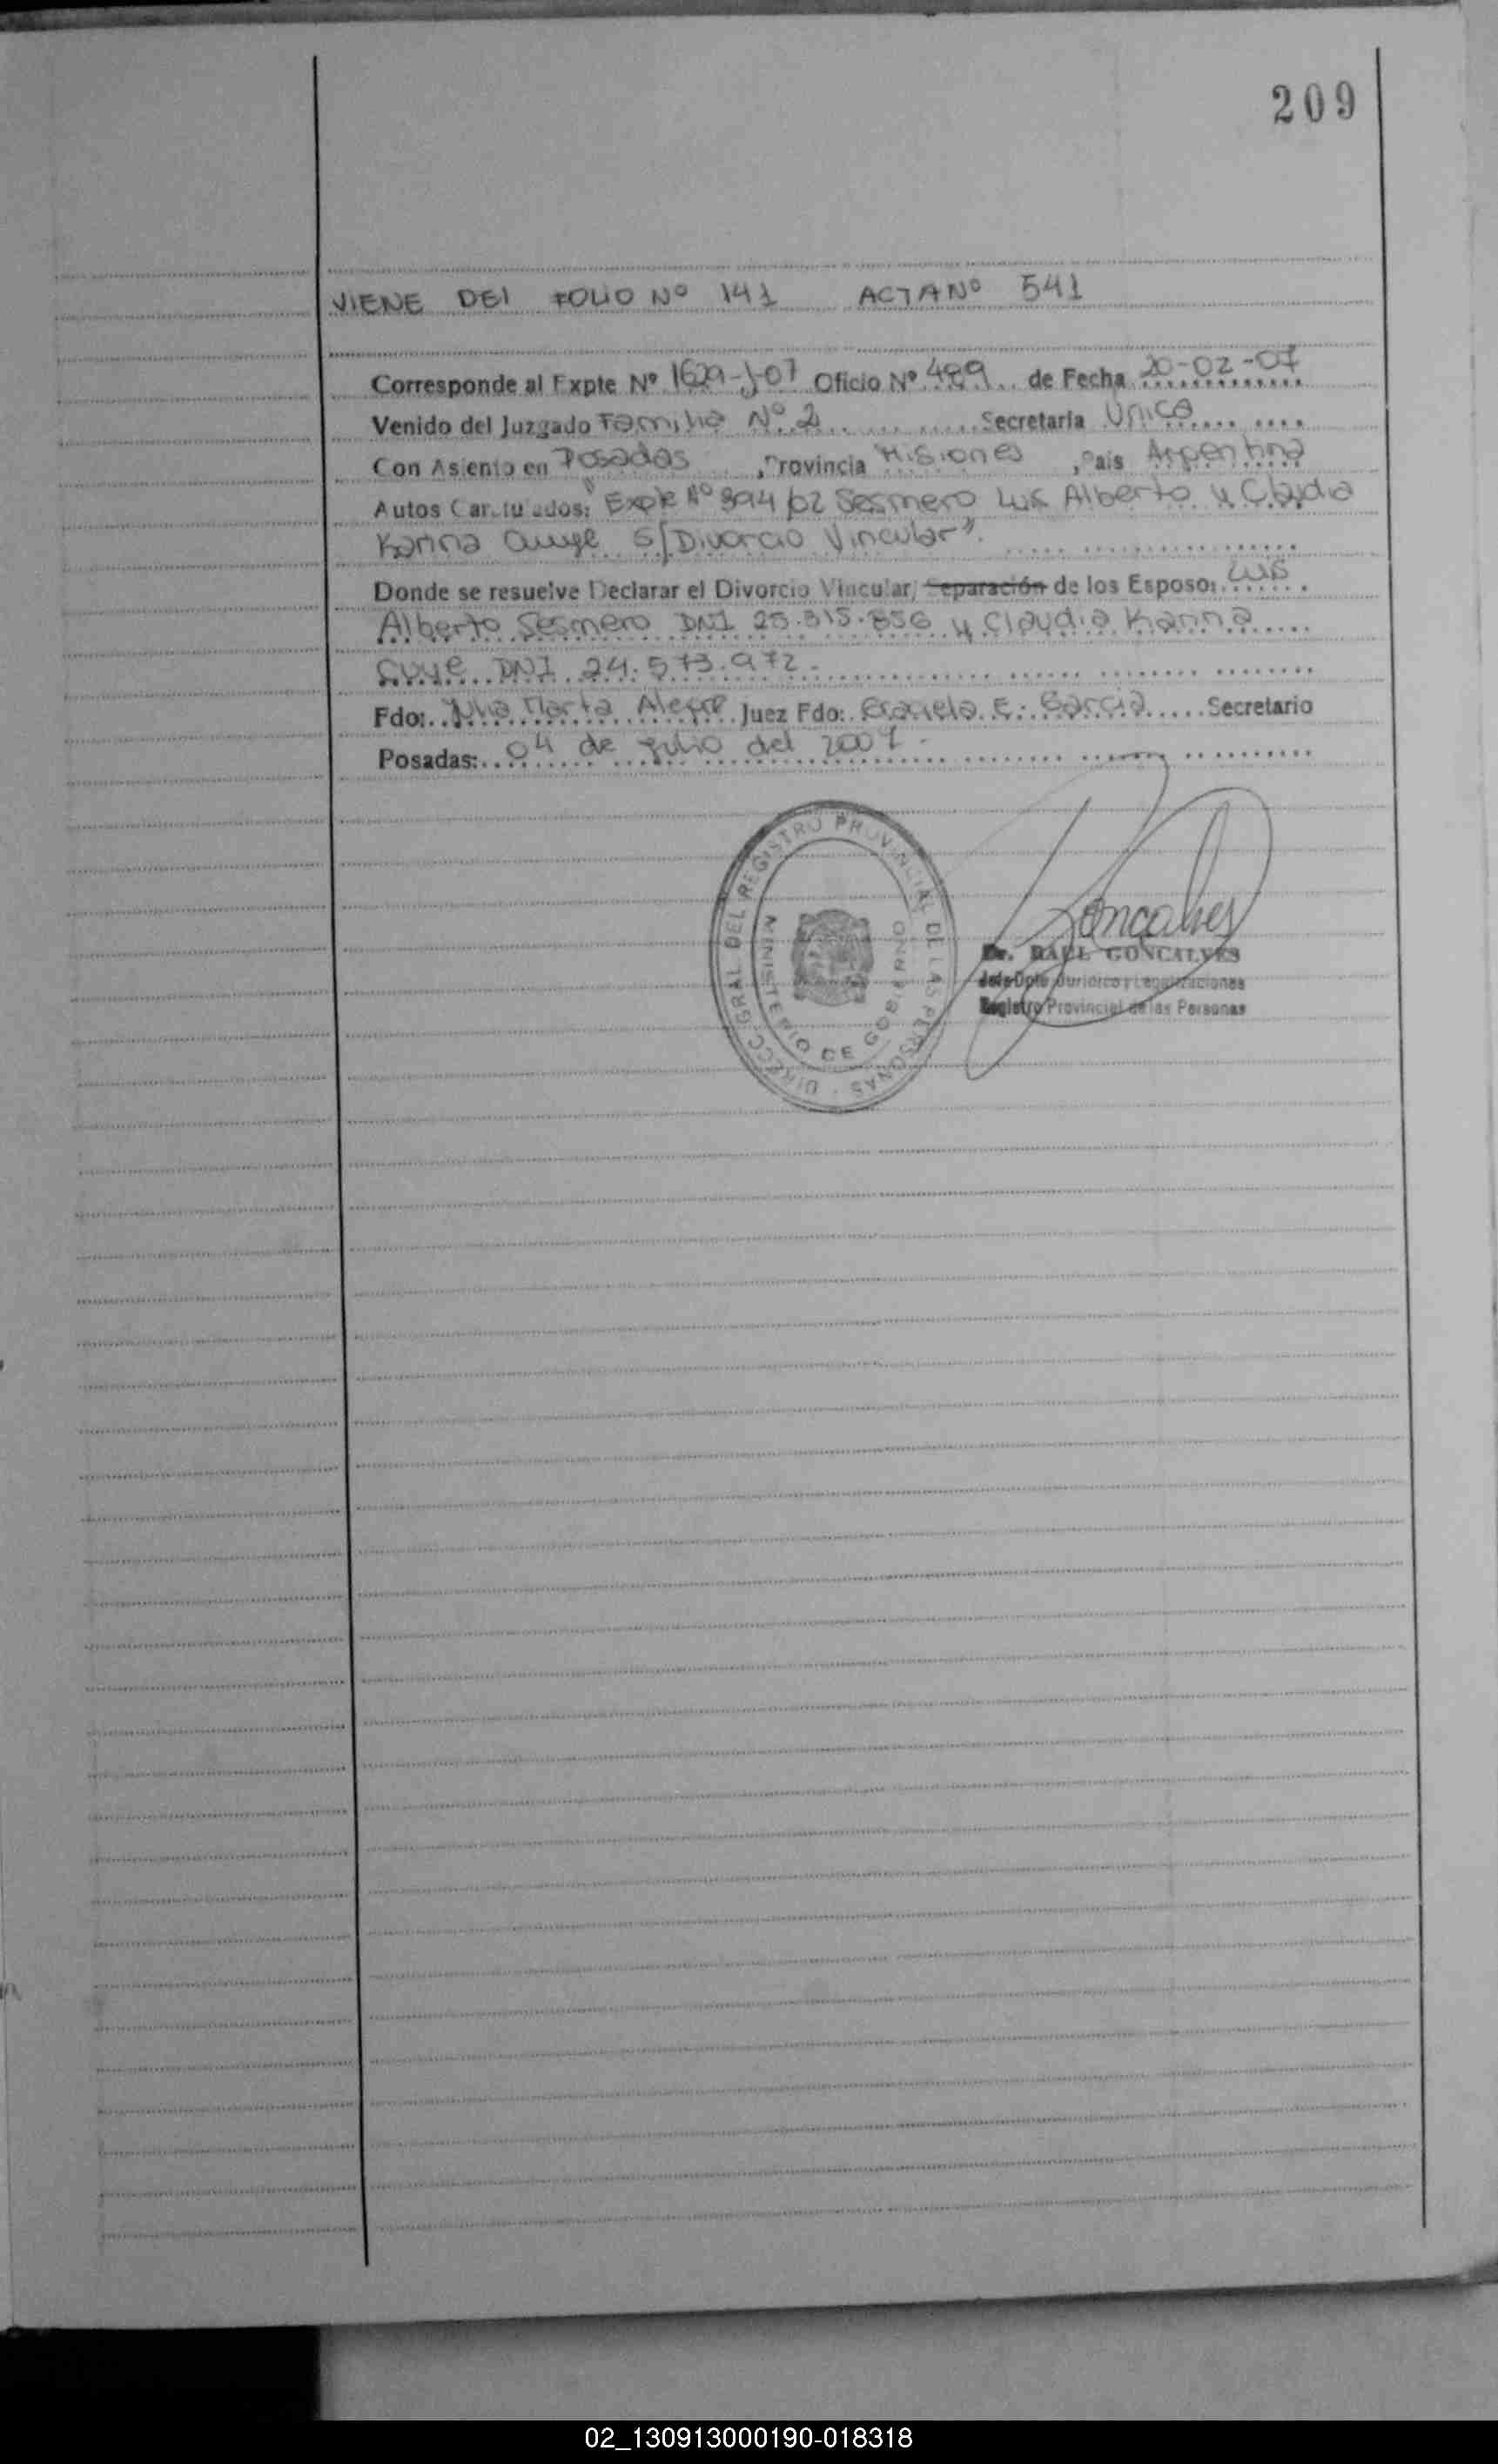 209
VIENE DEL FOLIO Nº 141 ACTA Nº 541
Corresponde al Expte Nº 1629-J-07 Oficio Nº 489 de Fecha 20-02-07
Venido del Juzgado Familia Nº 2 Secretaria Unica
Con Asiento en Posadas, Provincia Misiones, Pais Argentina
Autos Caratulados: "Expte Nº 394/02 Sesmero Luis Alberto y Claudia
Karina S/Divorcio Vincular".
Donde se resuelve Declarar el Divorcio Vincular, Separación de los Esposos: Luis
Alberto Sesmero DNI 25.315.856 y Claudia Karina
DNI 24.573.972.
Fdo: Julia Marta Alegre Juez Fdo: Graciela E. Garcia Secretario
Posadas: 04 de Julio del 2007.
DIRECC GRAL. DEL REGISTRO PROVINCIAL DE LAS PERSONAS
MINISTERIO DE GOBIERNO
Goncalves
Dr. RAUL GONCALVES
Jefe Dpto Juridico y Legalizaciones
Registro Provincial de las Personas
02_130913000190-018318